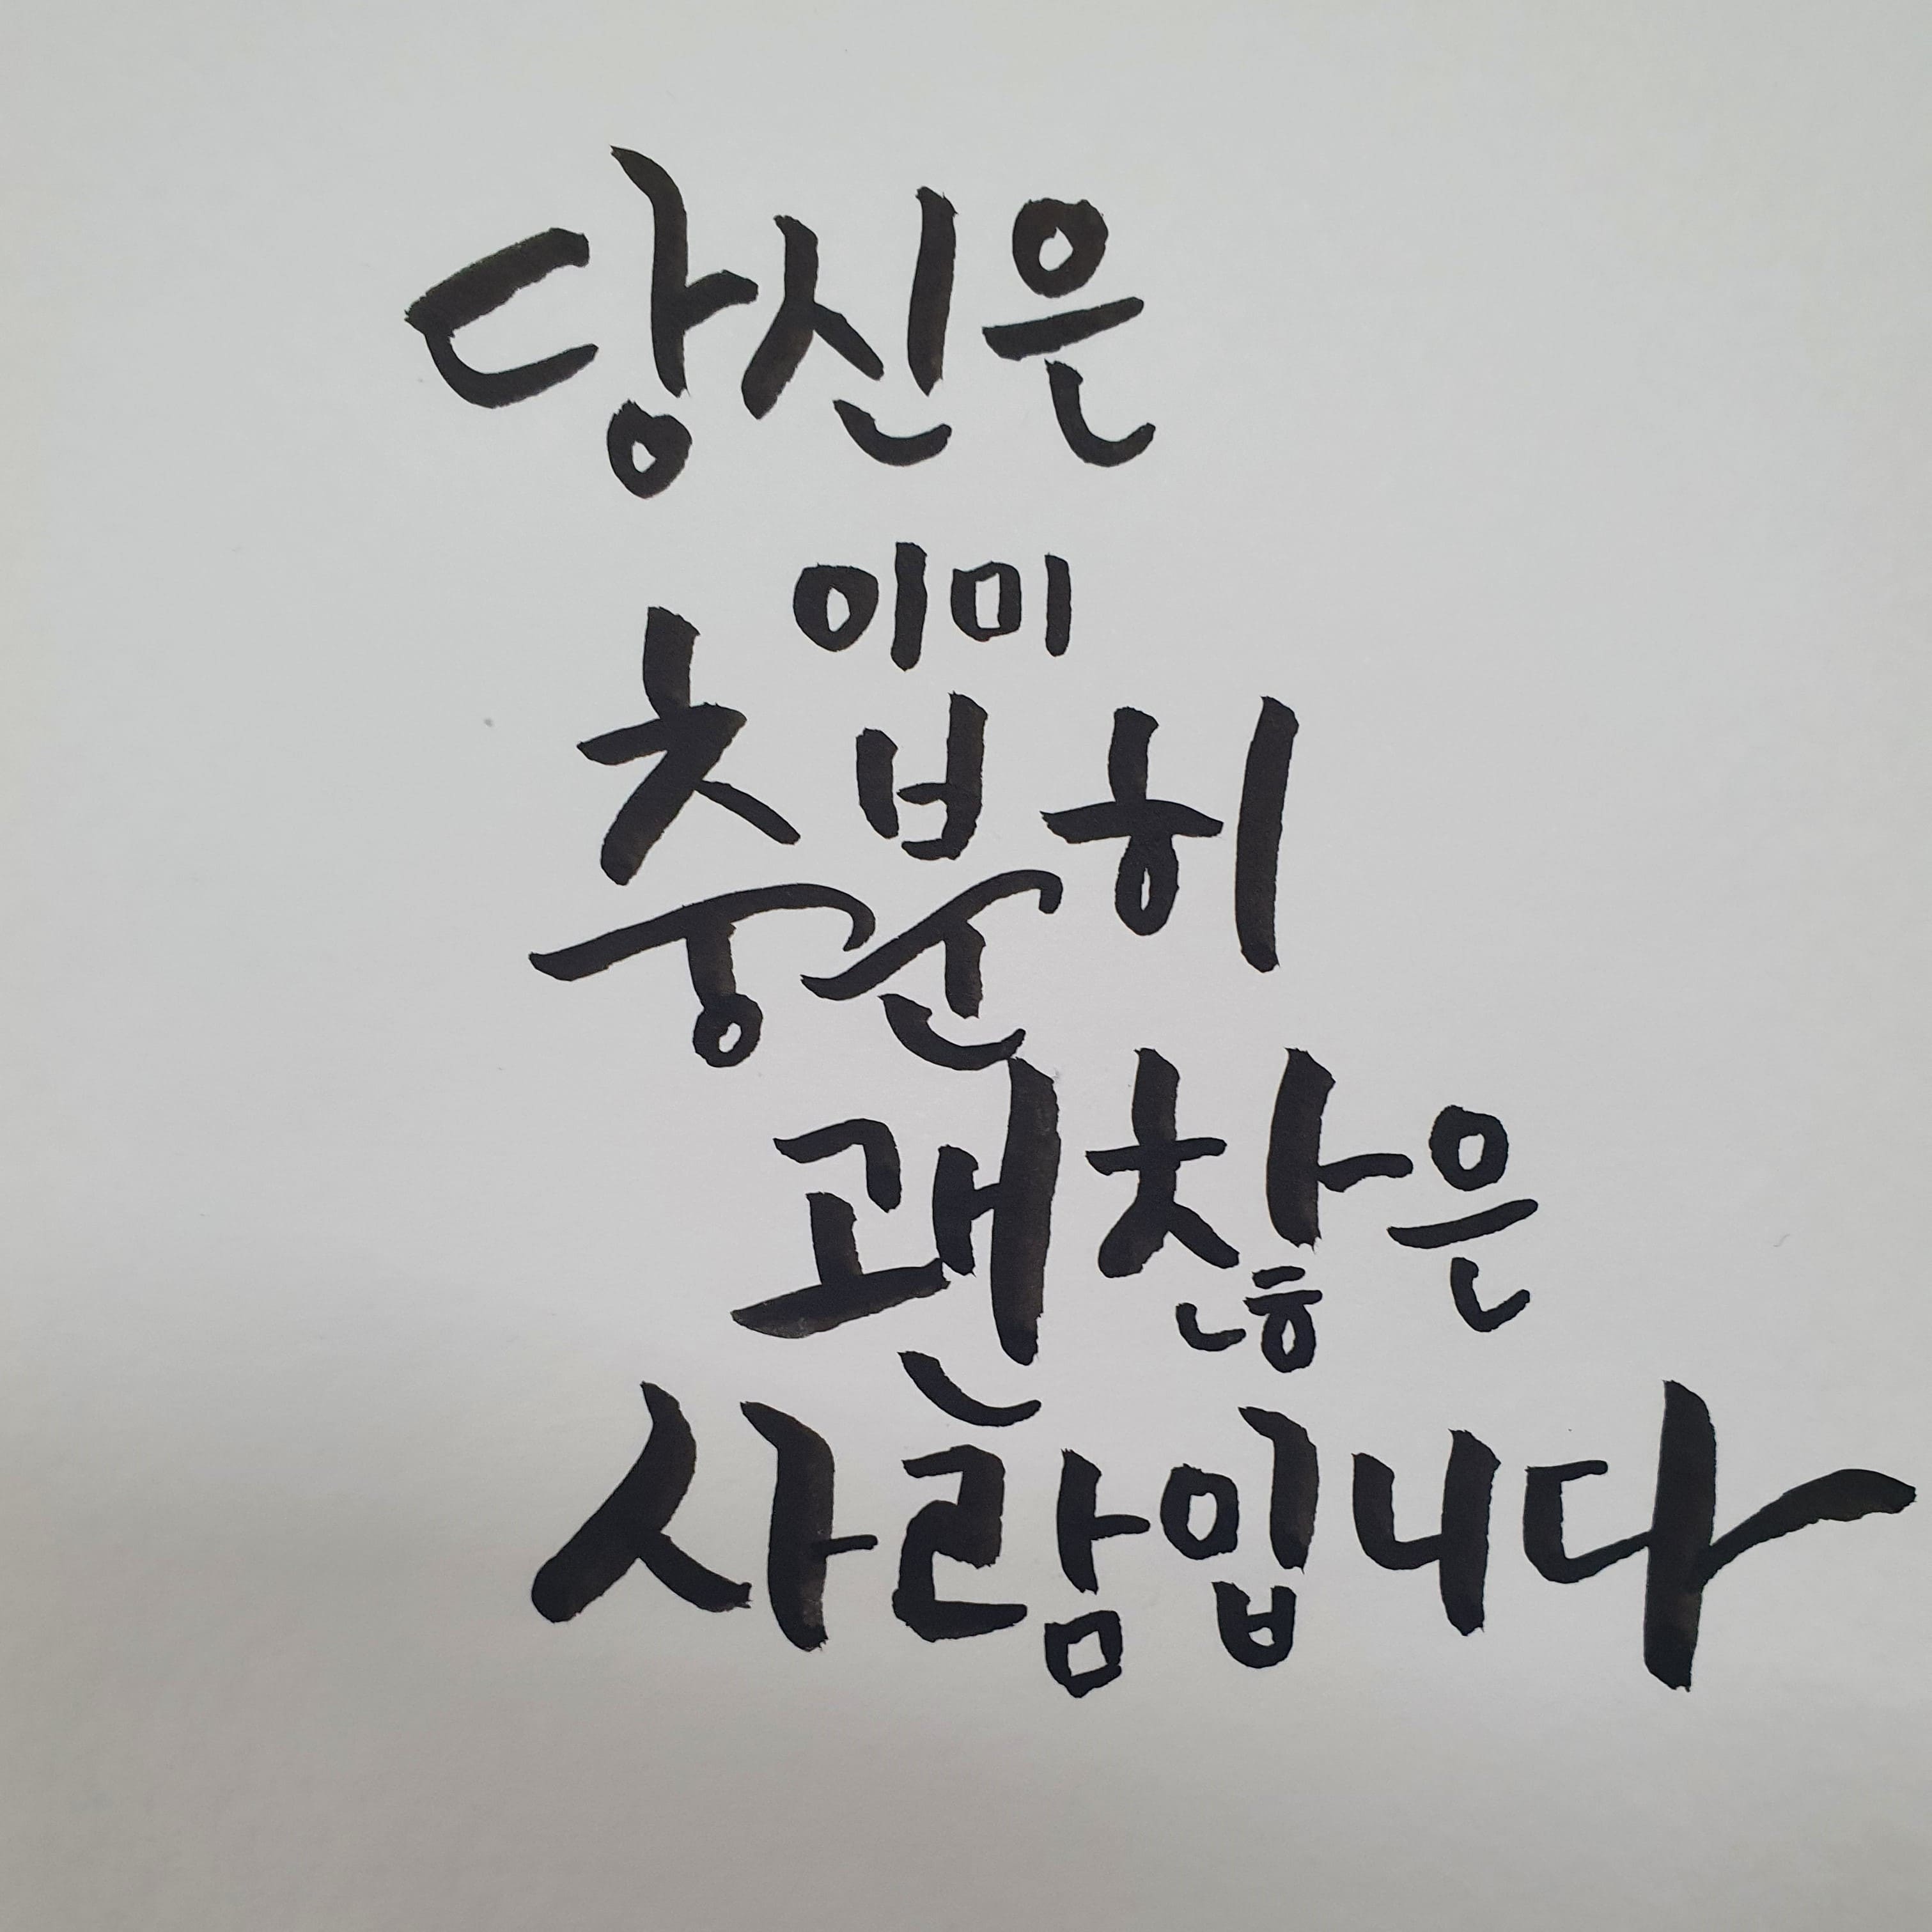 당신은
이미
충분히
괜찮은
사람입니다